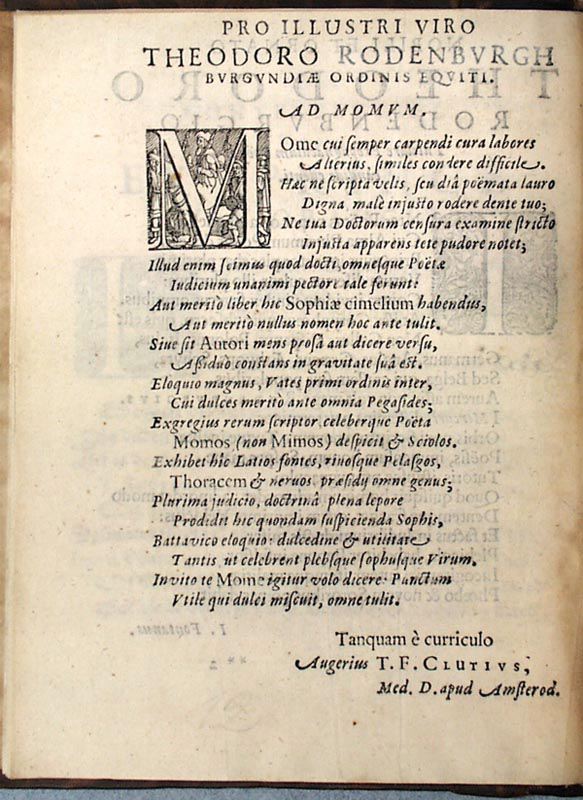 PRO ILLUSTRI VIRO
THEODORO RODENBVRGH
BVRGVNDIÆ ORDINIS EQVITI.
AD MOMVM.
MOme cui ſemper carpendi cura labores
Alterius, ſimiles condere difficile.
Hæc nè ſcripta velis, ſeu diâ poëmata lauro
Digna, malè injuſto rodere dente tuo;
Ne tua Doctorum cenſura examine ſtricto
Injuſta apparens tete pudore notet;
Illud enim ſcimus quod docti, omneſque Poëtæ
Iudicium unanimi pectore tale ferunt:
Aut meritò liber hic Sophiæ cimelium habendus,
Aut meritò nullus nomen hoc ante tulit.
Siue ſit Autori mens proſâ aut dicere verſu,
Aſſiduò conſtans in gravitate ſuâ est.
Eloquio magnus, Vates primi ordinis inter,
Cui dulces meritò ante omnia Pegaſides;
Exgregius rerum ſcriptor, celeberque Poëta
Momos (non Mimos) deſpicit & Sciolos.
Exhibet hic Latios fontes, rivoſque Pelaſgos,
Thoracem & nervos, præſidy omne genus;
Plurima judicio, doctrinâ plena lepore
Prodidit hic quondam ſuſpicienda Sophis,
Battavico eloquio: dulcedine & utilitate
Tantis ut celebrent plebſque ſophuſque Virum.
Invito te Mome igitur volo dicere: Punctum
Vtile qui dulci miſcuit, omne tulit.
Tanquam è curriculo
Augerius T. F. CLUTIVS,
Med. D. apud Amſterod.